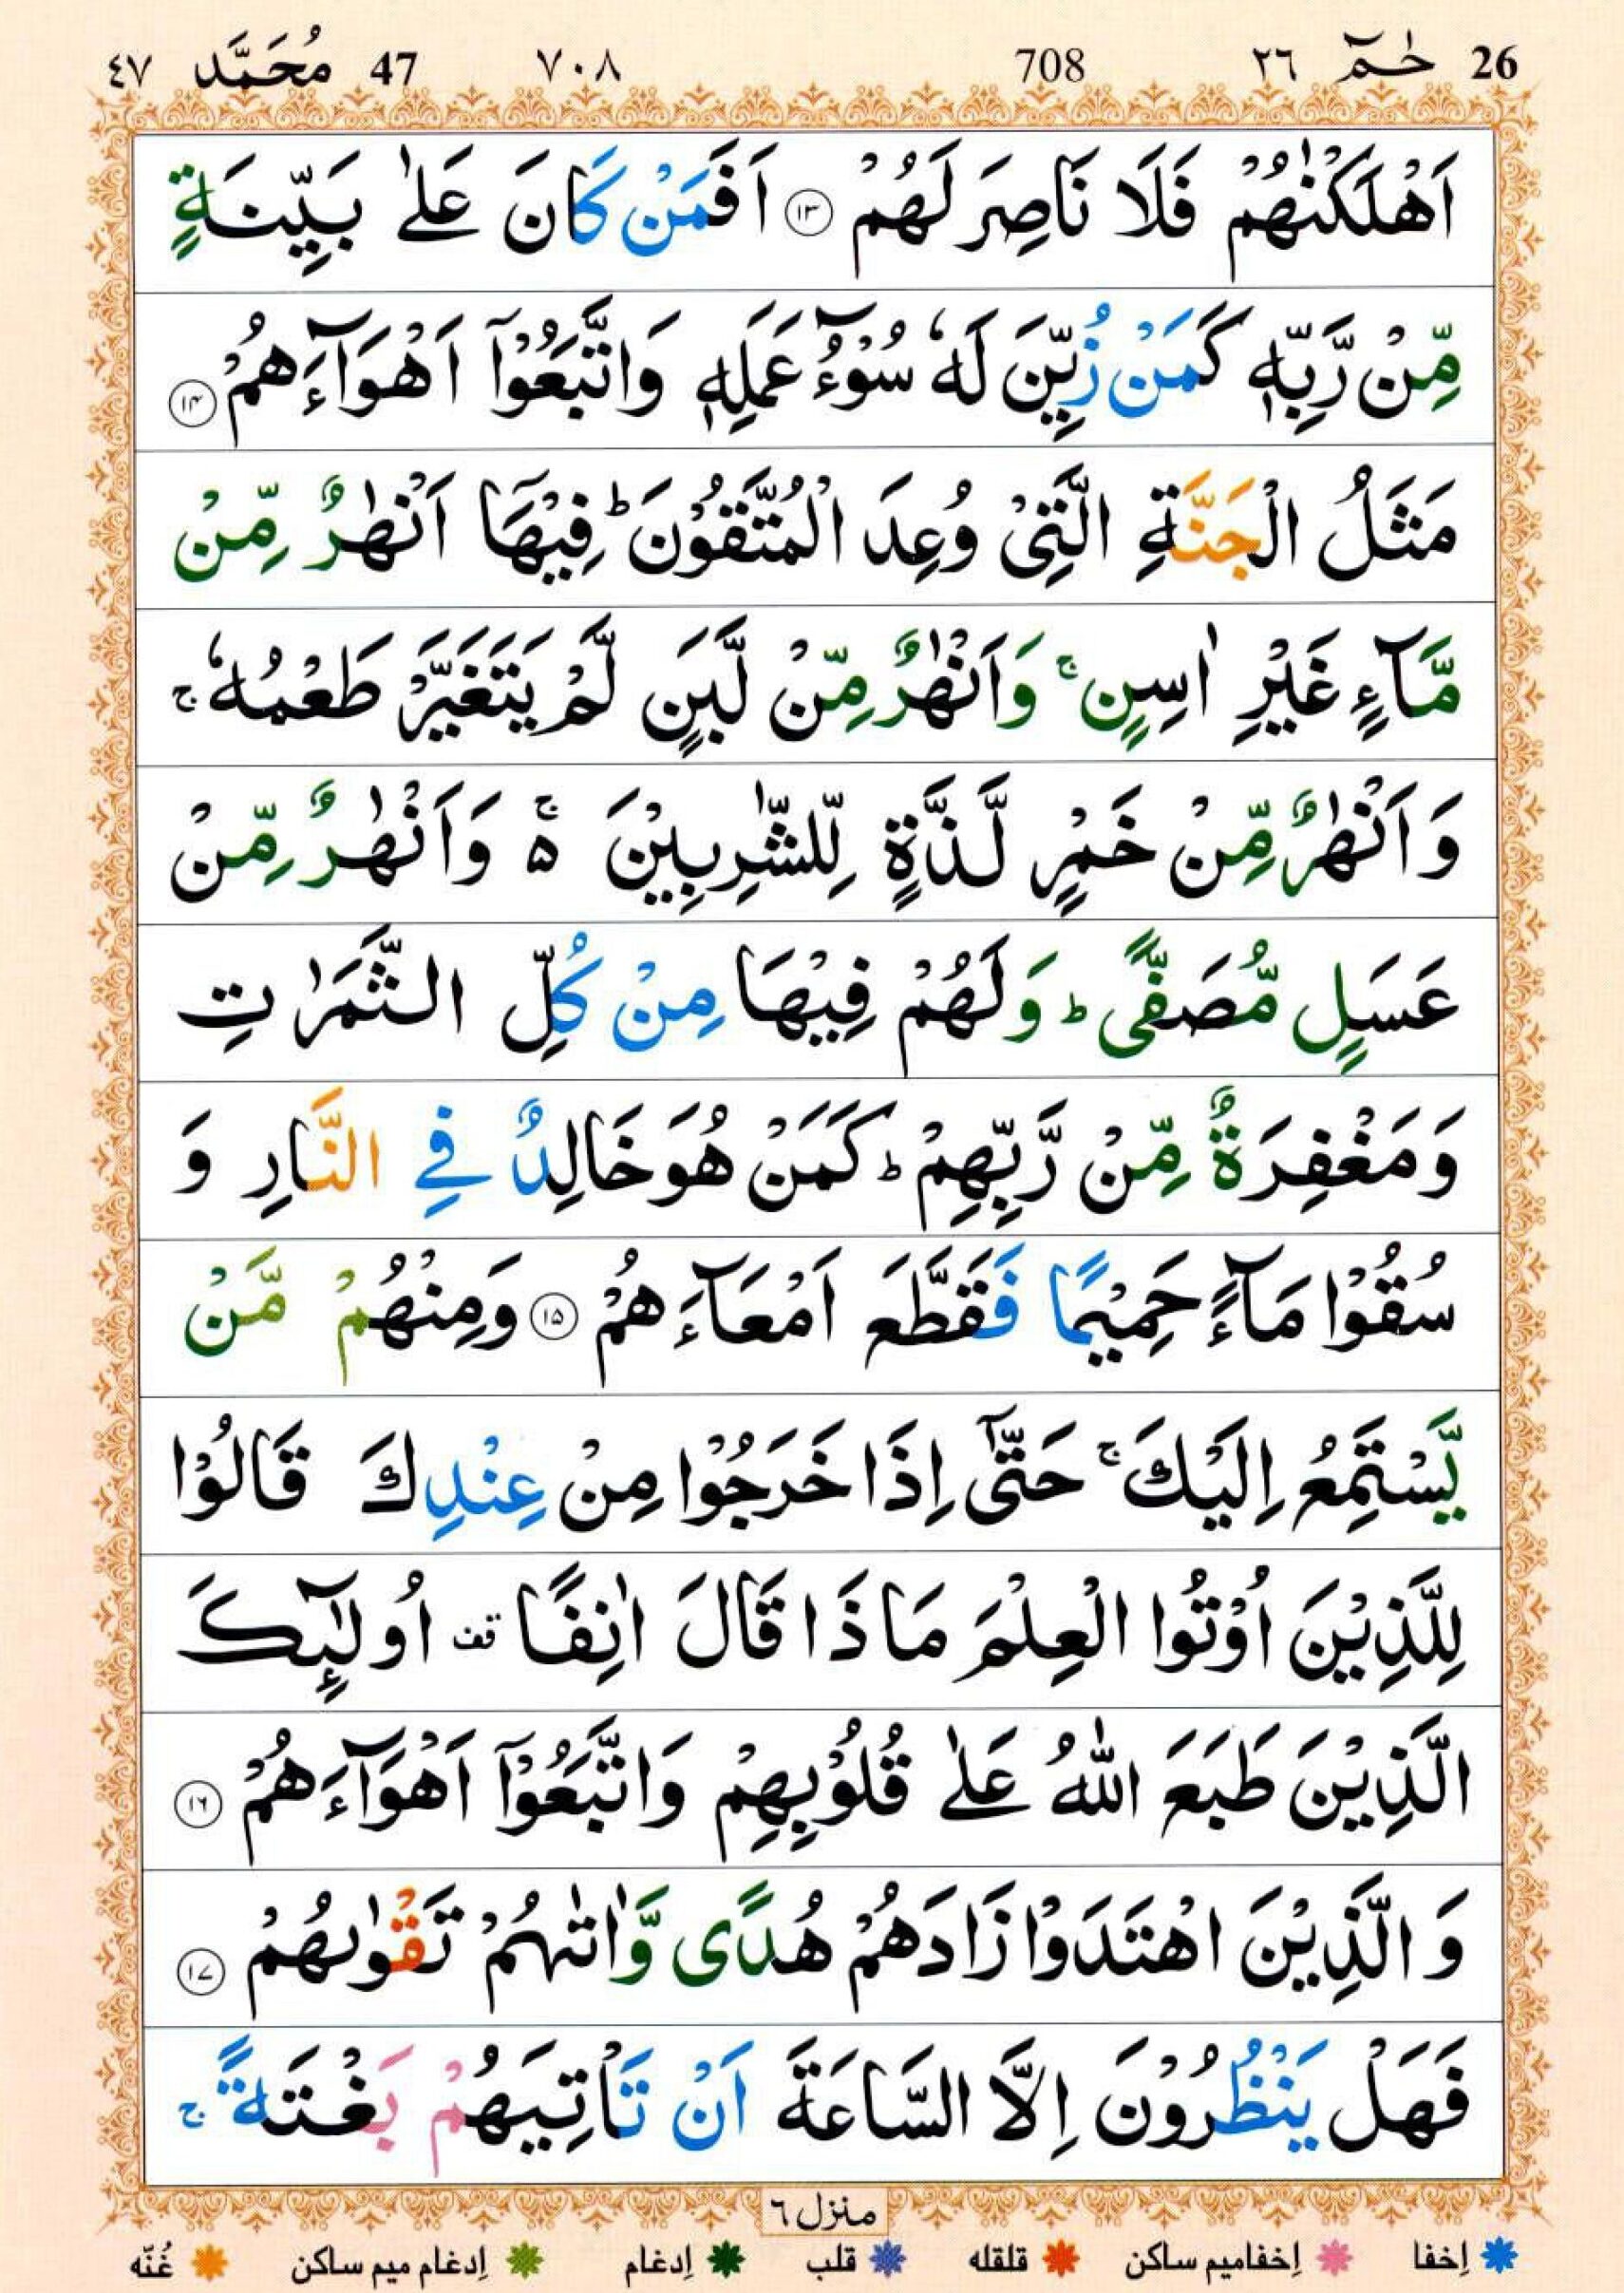 26 حٰمٓ ٢٦ 708 ٧٠٨ 47 مُحَمَّد ٤٧
اَهْلَكْنٰهُمْ فَلَا نَاصِرَ لَهُمْ ۝۱۳ اَفَمَنْ كَانَ عَلٰى بَيِّنَةٍ
مِّنْ رَّبِّهٖ كَمَنْ زُيِّنَ لَهٗ سُوْٓءُ عَمَلِهٖ وَاتَّبَعُوْۤا اَهْوَآءَهُمْ ۝۱۴
مَثَلُ الْجَنَّةِ الَّتِىْ وُعِدَ الْمُتَّقُوْنَ ؕ فِيْهَاۤ اَنْهٰرٌ مِّنْ
مَّآءٍ غَيْرِ اٰسِنٍ ۚ وَاَنْهٰرٌ مِّنْ لَّبَنٍ لَّمْ يَتَغَيَّرْ طَعْمُهٗ ۚ
وَاَنْهٰرٌ مِّنْ خَمْرٍ لَّذَّةٍ لِّلشّٰرِبِيْنَ ۵ۚ وَاَنْهٰرٌ مِّنْ
عَسَلٍ مُّصَفًّى ؕ وَلَهُمْ فِيْهَا مِنْ كُلِّ الثَّمَرٰتِ
وَمَغْفِرَةٌ مِّنْ رَّبِّهِمْ ؕ كَمَنْ هُوَ خَالِدٌ فِى النَّارِ وَ
سُقُوْا مَآءً حَمِيْمًا فَقَطَّعَ اَمْعَآءَهُمْ ۝۱۵ وَمِنْهُمْ مَّنْ
يَّسْتَمِعُ اِلَيْكَ ۚ حَتّٰۤى اِذَا خَرَجُوْا مِنْ عِنْدِكَ قَالُوْا
لِلَّذِيْنَ اُوْتُوا الْعِلْمَ مَاذَا قَالَ اٰنِفًا قف اُولٰٓئِكَ
الَّذِيْنَ طَبَعَ اللّٰهُ عَلٰى قُلُوْبِهِمْ وَاتَّبَعُوْۤا اَهْوَآءَهُمْ ۝۱۶
وَ الَّذِيْنَ اهْتَدَوْا زَادَهُمْ هُدًى وَّاٰتٰىهُمْ تَقْوٰىهُمْ ۝۱۷
فَهَلْ يَنْظُرُوْنَ اِلَّا السَّاعَةَ اَنْ تَاْتِيَهُمْ بَغْتَةً ۚ
منزل ٦
إخفا إخفاميم ساكن قلقله قلب إدغام إدغام ميم ساكن غُنّه